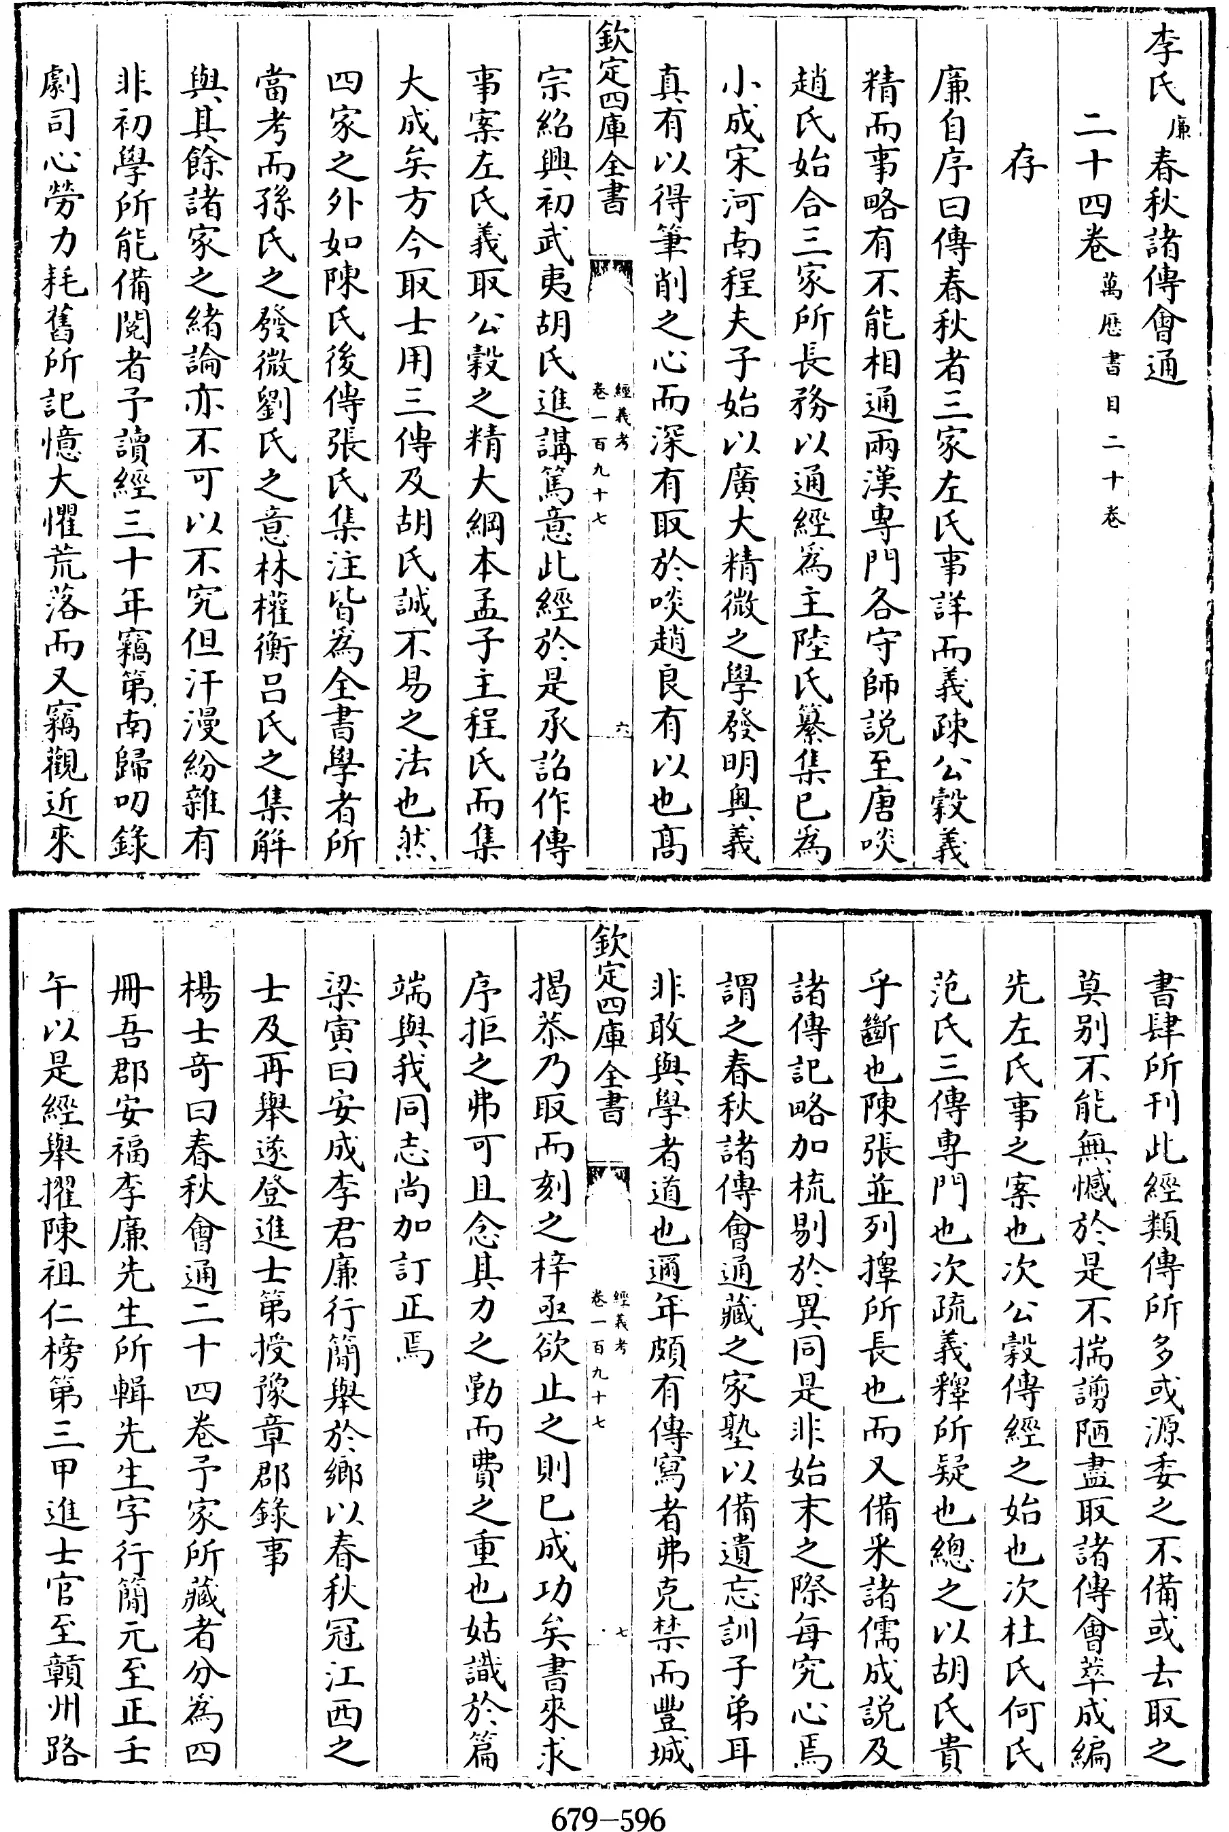 李氏廉春秋諸傳會通
二十四卷萬厯書目二十卷
存
廉自序曰傳春秋者三家左氏事詳而義疎公穀義
精而事略有不能相通兩漢專門各守師説至唐啖
趙氏始合三家所長務以通經為主陸氏纂集已為
小成宋河南程夫子始以廣大精微之學發明奥義
真有以得筆削之心而深有取於啖趙良有以也髙
欽定四庫全書
經義考
卷一百九十七
六
宗紹興初武夷胡氏進講篤意此經於是承詔作傳
事案左氏義取公穀之精大綱本孟子主程氏而集
大成矣方今取士用三傳及胡氏誠不易之法也然
四家之外如陳氏後傳張氏集注皆為全書學者所
當考而孫氏之發微劉氏之意林權衡吕氏之集解
與其餘諸家之緒論亦不可以不究但汗漫紛雜有
非初學所能備閲者予讀經三十年竊第南歸叨錄
劇司心勞力耗舊所記憶大懼荒落而又竊觀近來
書肆所刊此經類傳所多或源委之不備或去取之
莫别不能無憾於是不揣謭陋盡取諸傳會萃成編
先左氏事之案也次公穀傳經之始也次杜氏何氏
范氏三傳專門也次疏義釋所疑也總之以胡氏貴
乎斷也陳張並列擇所長也而又備采諸儒成説及
諸傳記略加梳剔於異同是非始末之際每究心焉
謂之春秋諸傳會通藏之家塾以備遺忘訓子弟耳
非敢與學者道也邇年頗有傳寫者弗克禁而豐城
欽定四庫全書
經義考
卷一百九十七
七
揭恭乃取而刻之梓亟欲止之則已成功矣書來求
序拒之弗可且念其力之勤而費之重也姑識於篇
端與我同志尚加訂正焉
梁寅曰安成李君廉行簡舉於鄉以春秋冠江西之
士及再舉遂登進士第授豫章郡錄事
楊士竒曰春秋會通二十四卷予家所藏者分為四
冊吾郡安福李廉先生所輯先生字行簡元至正壬
午以是經舉擢陳祖仁榜第三甲進士官至贛州路
679-596